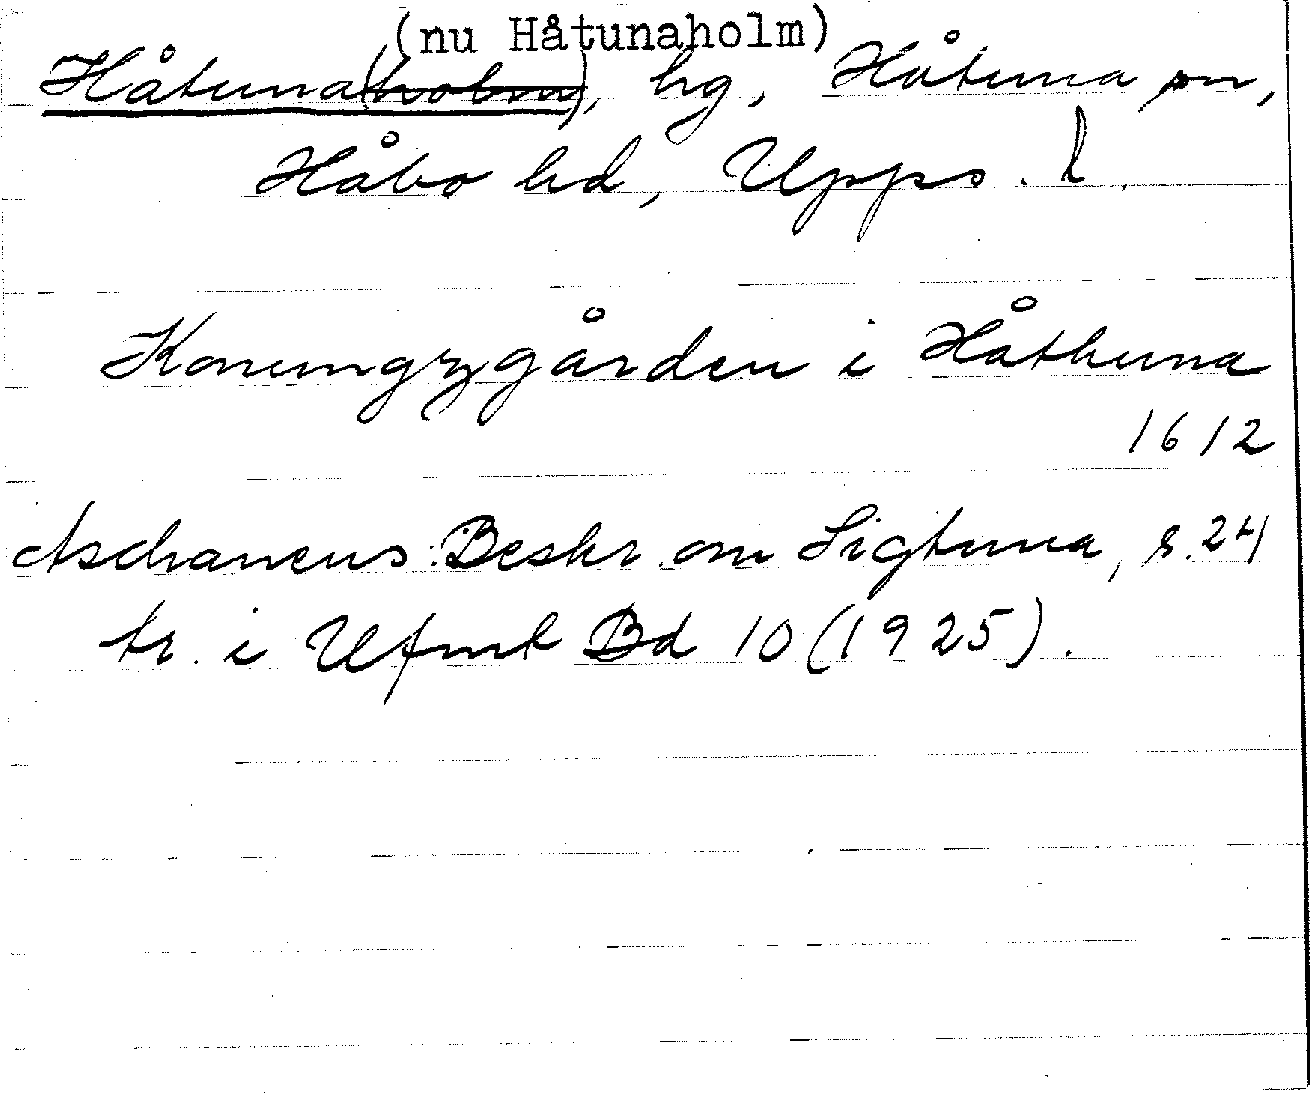 (nu Håtunaholm)
Håtuna(holm), hg, Håtuna sn,
Håbo hd, Upps. l.
Konungzgården i Håthuna
1612
Aschaneus: Beskr. om Sigtuna, s. 24
tr. i Ufmt Bd 10 (1925).